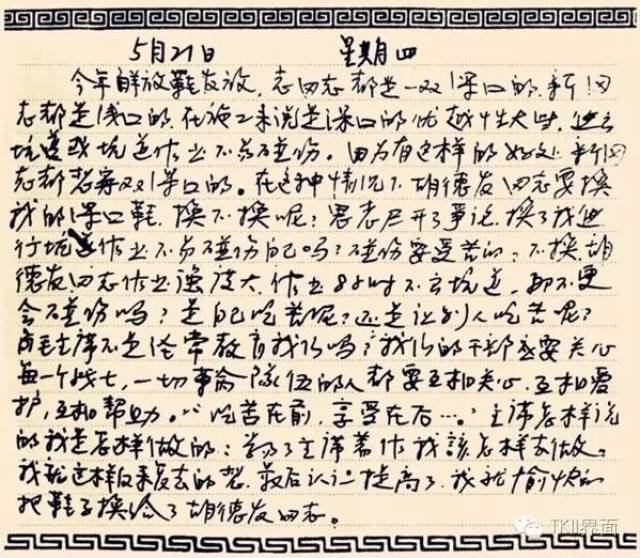 5月21日 星期四
今年解放鞋发放,老同志都是一双深口的,新同
志都是浅口的,在施工来说是深口的优越性大些,进入
坑道或坑道作业不易碰伤。因为有这样的好处,新同
志都希望双深口的。在这种情况下胡德友同志要换
我的深口鞋,换不换呢?思想展开了争论,换了我进
行坑道作业不易碰伤自己吗?碰伤要受苦的;不换,胡
德友同志作业强度大,作业8小时不出坑道,那不更
会碰伤吗?是自己吃苦呢?还是让别人吃苦呢?
毛主席不是经常教育我们吗?我们的干部都要关心
每一个战士,一切革命队伍的人都要互相关心,互相爱
护,互相帮助。"吃苦在前,享受在后…。"主席怎样说
的我是怎样做的;学了主席著作我該怎样去做。
我就这样反来复去的想,最后认识提高了,我就愉快的
把鞋子换给了胡德友同志。
TKII界面